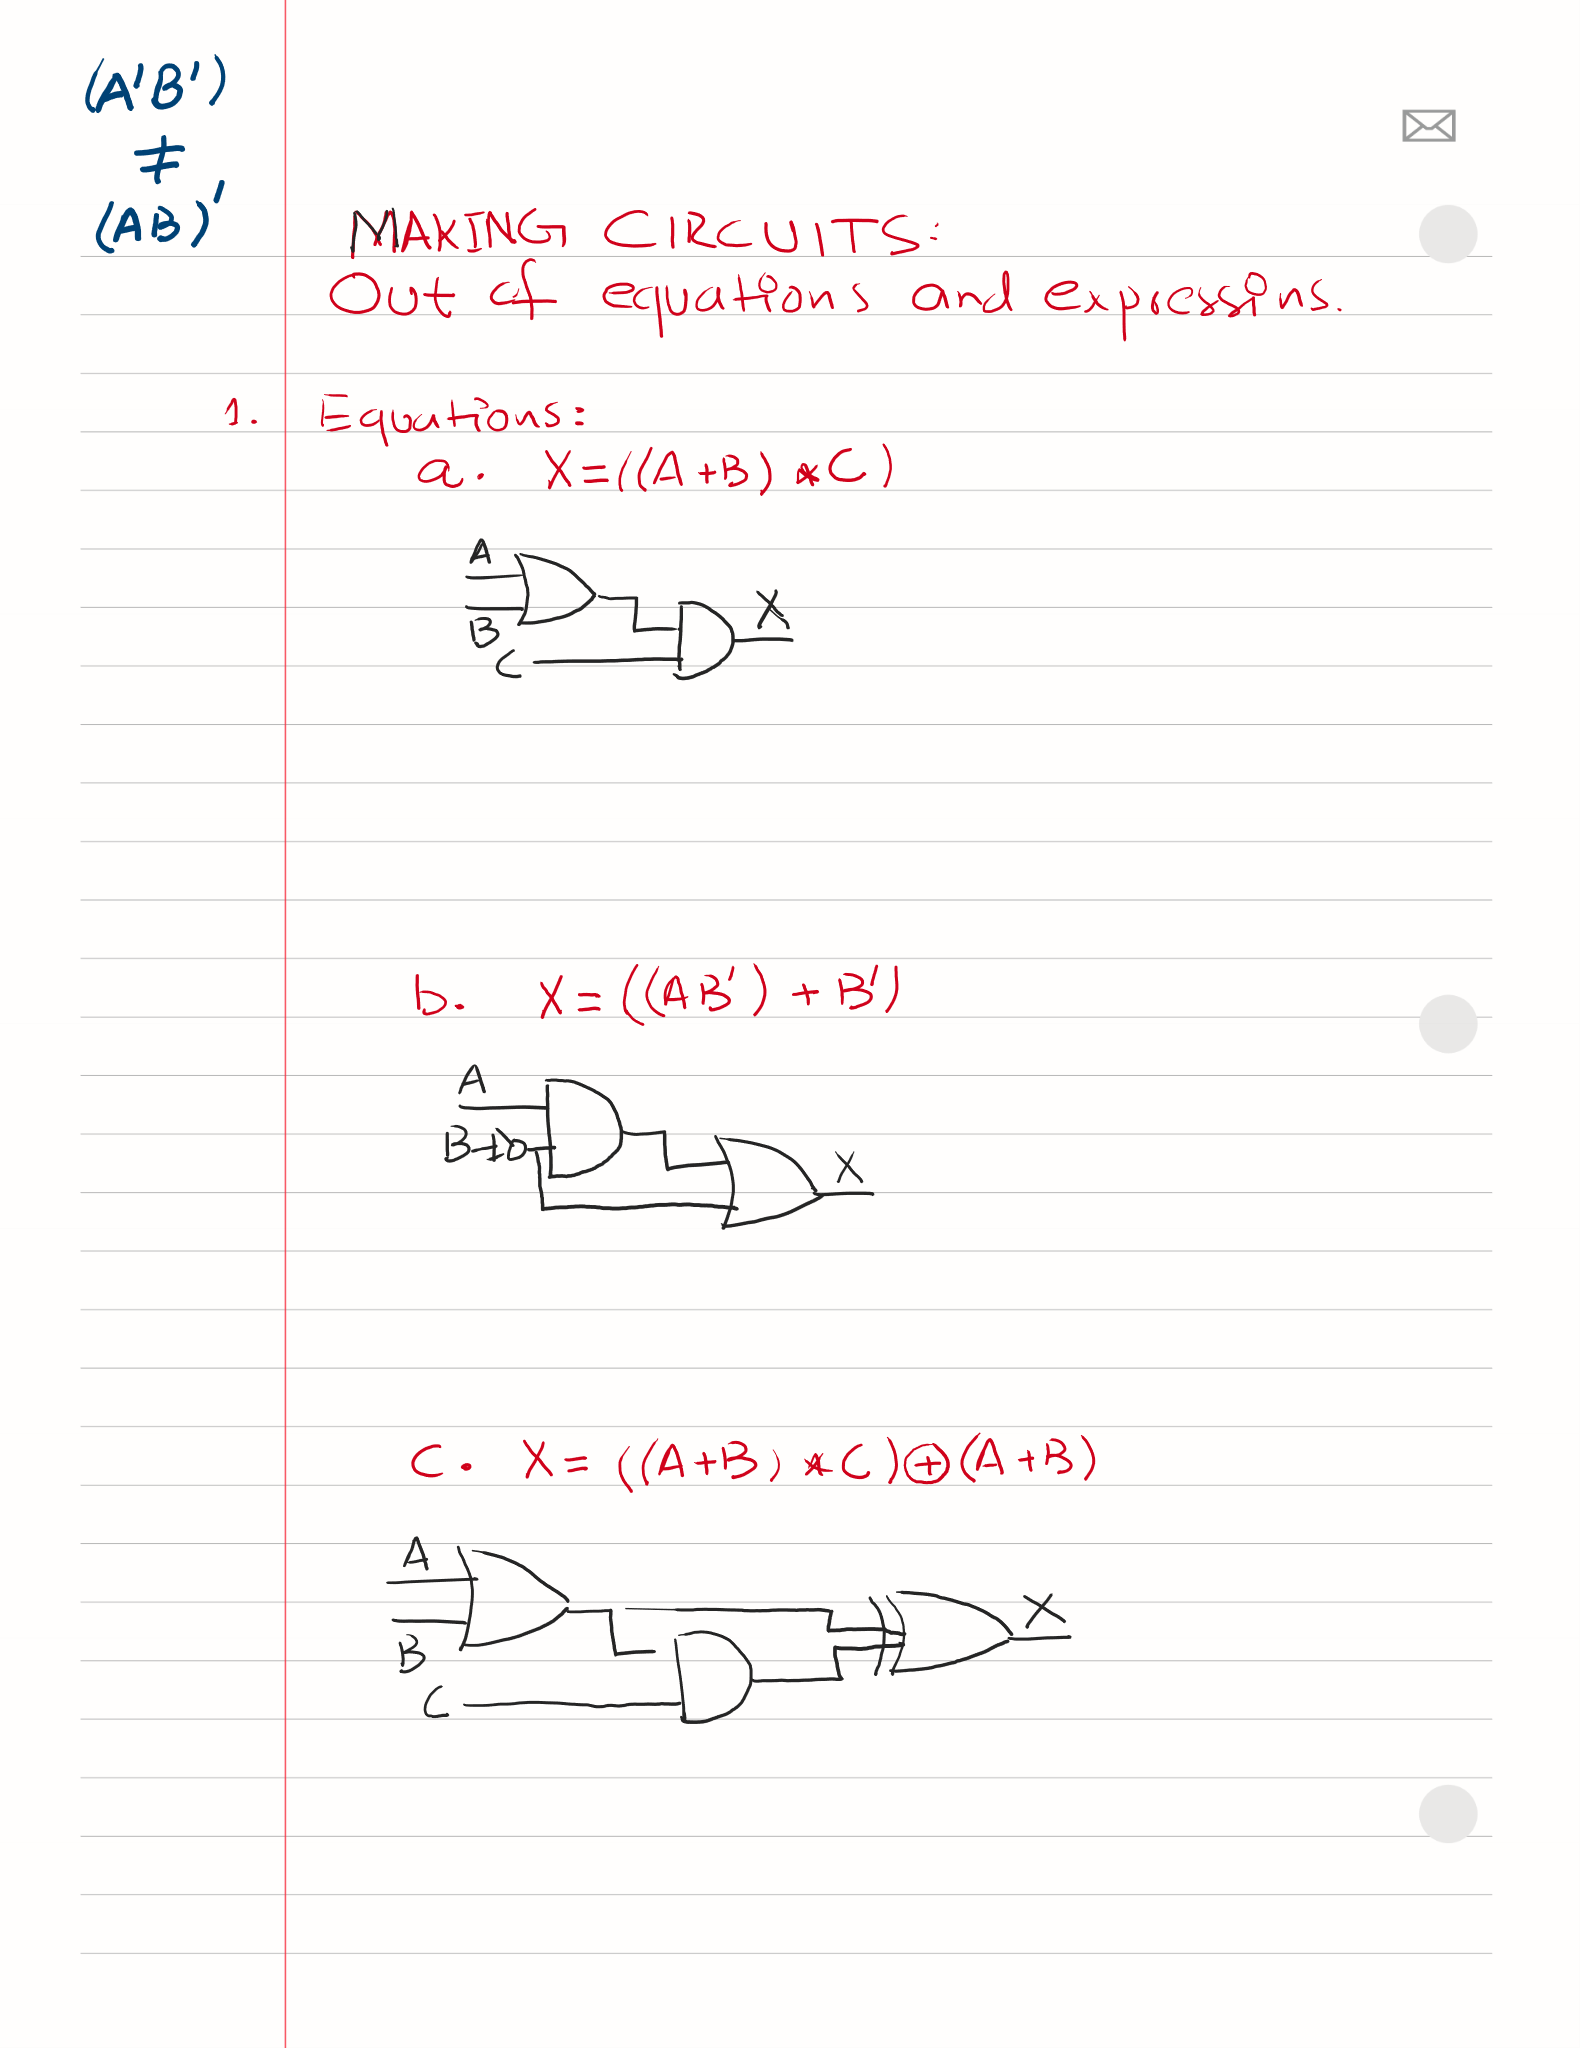 (A'B')
≠
(AB)'
MAKING CIRCUITS:
Out of equations and expressins.
1. Equations:
a. X=((A+B)*C)
A
B
C
X
b. X=((AB')+B')
A
B
X
C. X=((A+B)*C)⊕(A+B)
A
B
C
X